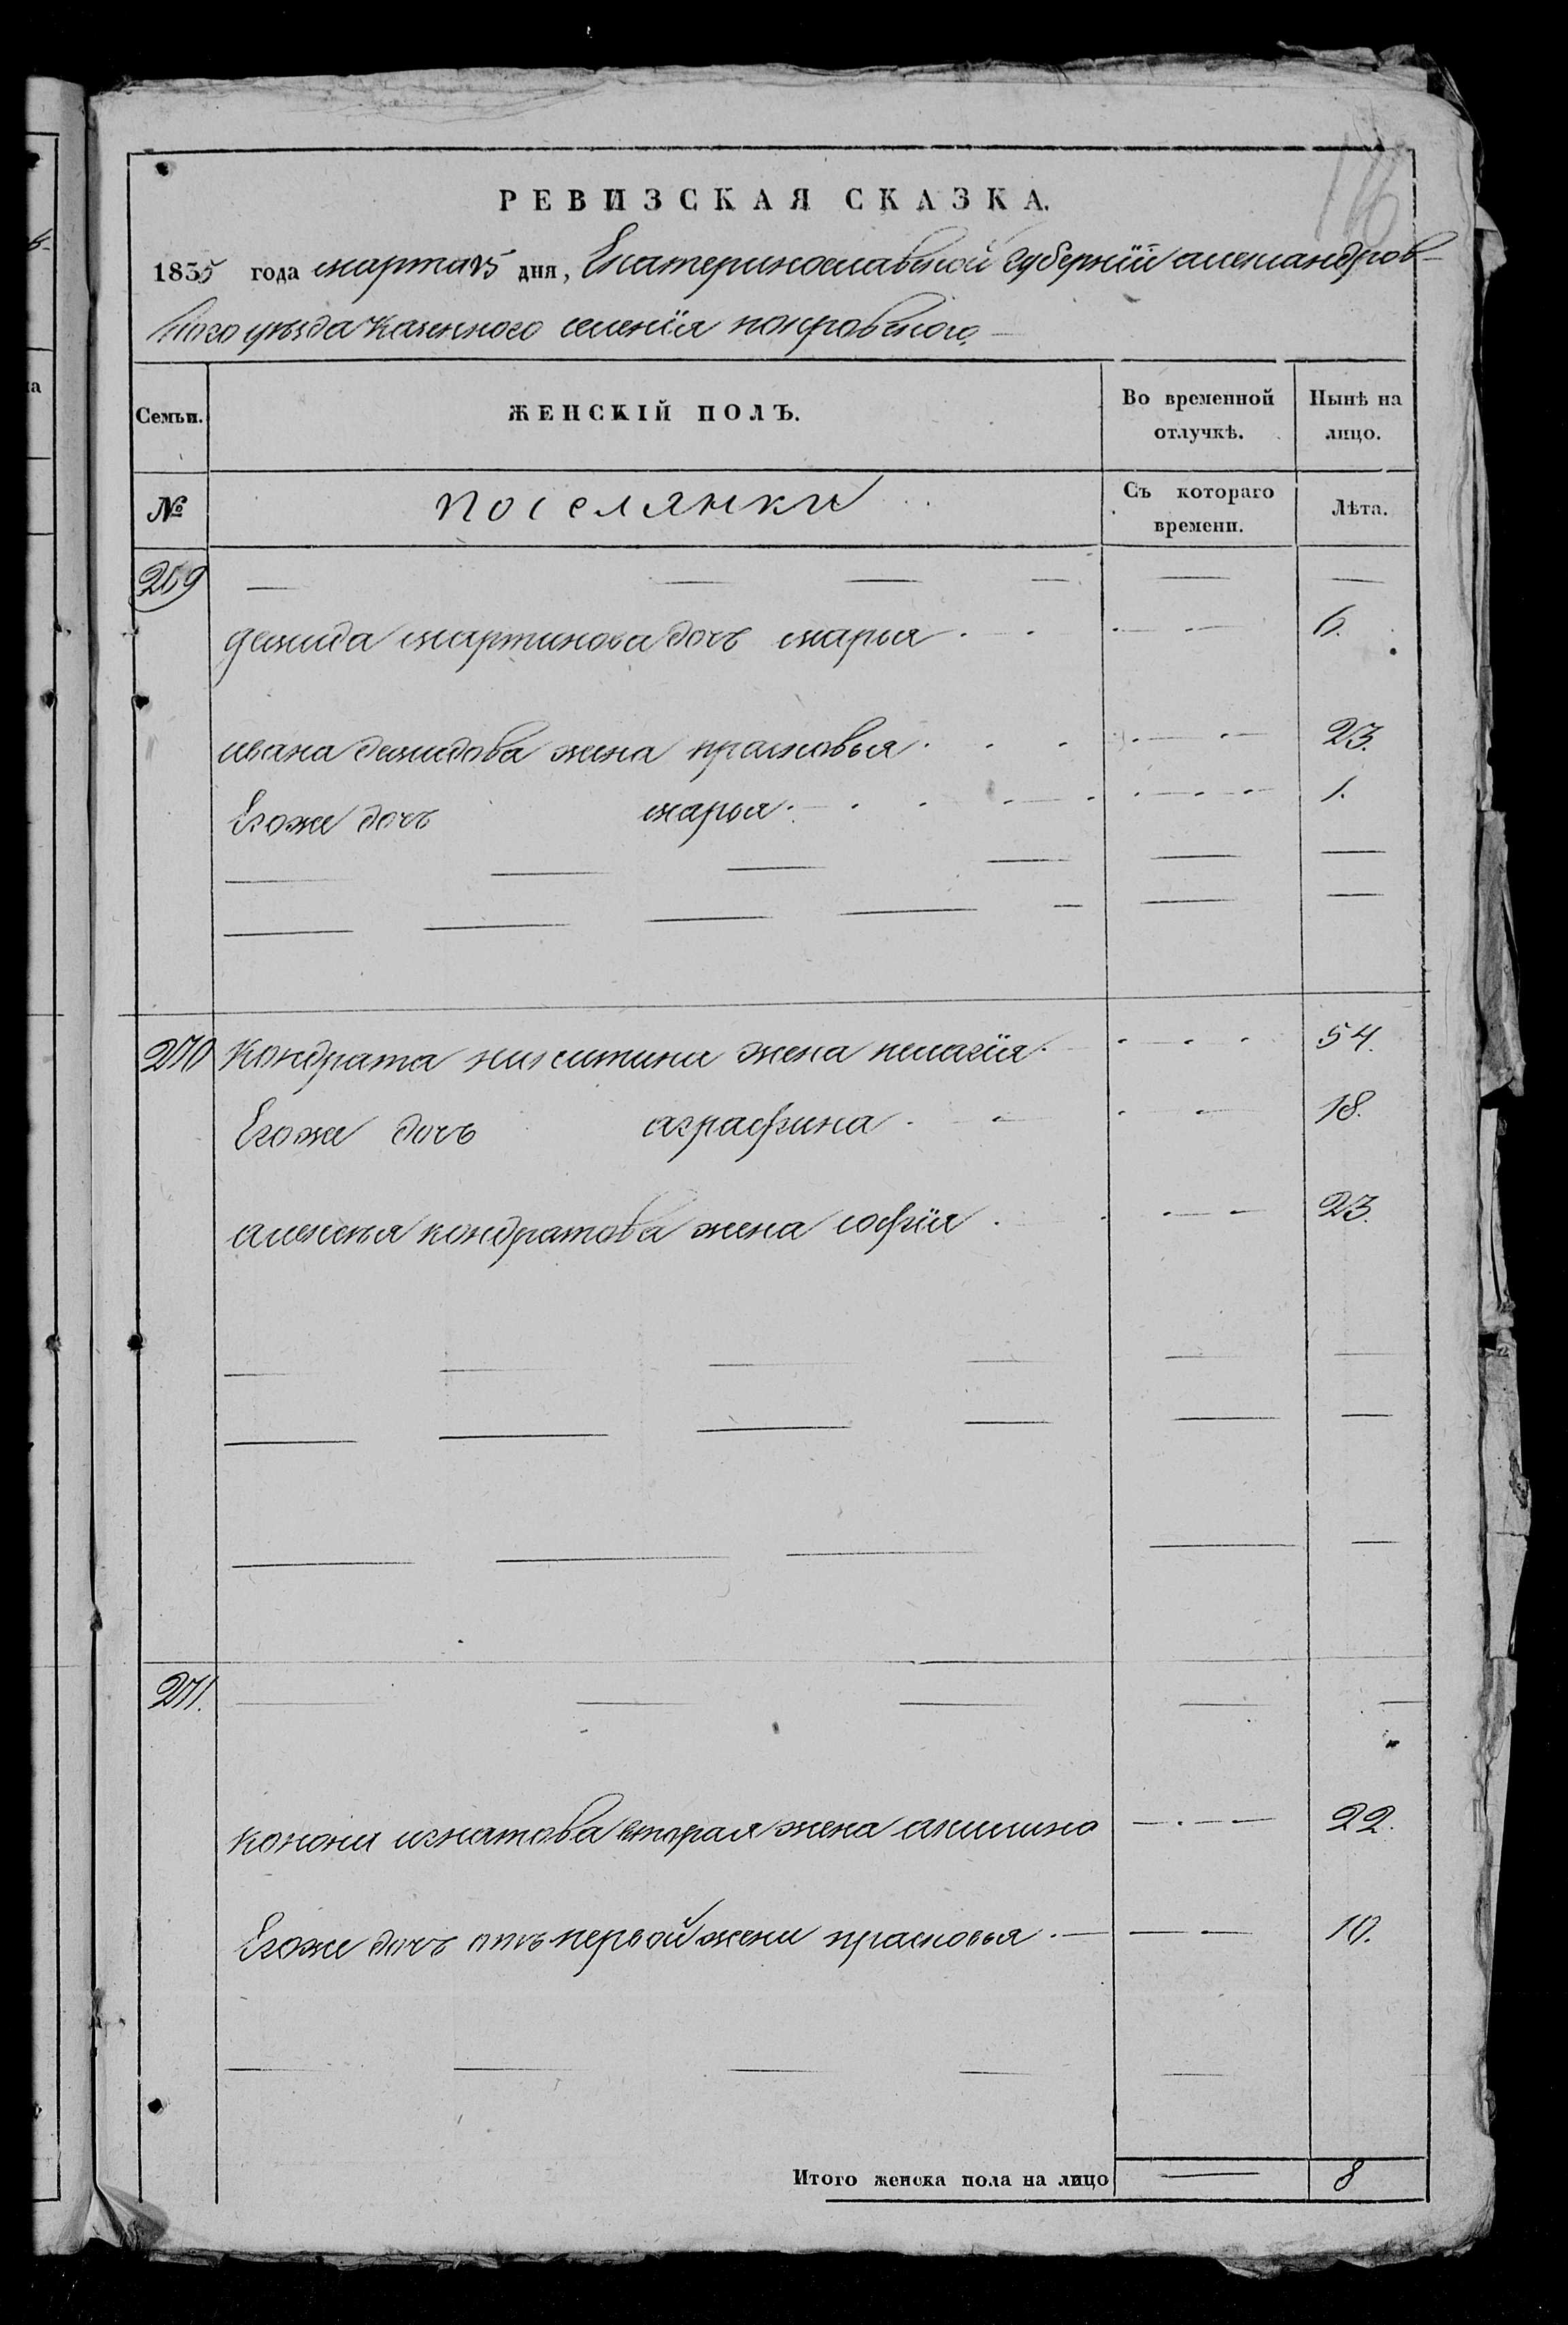 116
РЕВИЗСКАЯ СКАЗКА.
1835 года марта 15 дня, Екатеринославской губернїи александров-
ского уезда казенного селенїя покровского
Семьи. ЖЕНСКІЙ ПОЛЪ. Во временной отлучкѣ. Нынѣ на лицо.
№ поселянки Съ котораго времени. Лѣта.
269
демида мартинова дочь марья 6.
ивана демидова жена прасковья 23.
Егоже дочь марья 1.
270 Кондрата никитина жена пелагїя 54.
Егоже дочь аграфина 18.
алексея кондратова жена софїя 23.
271.
конона игнатова вторая жена акилина 22.
Егоже дочь отъ первой жени прасковья 10.
Итого женска пола на лицо 8